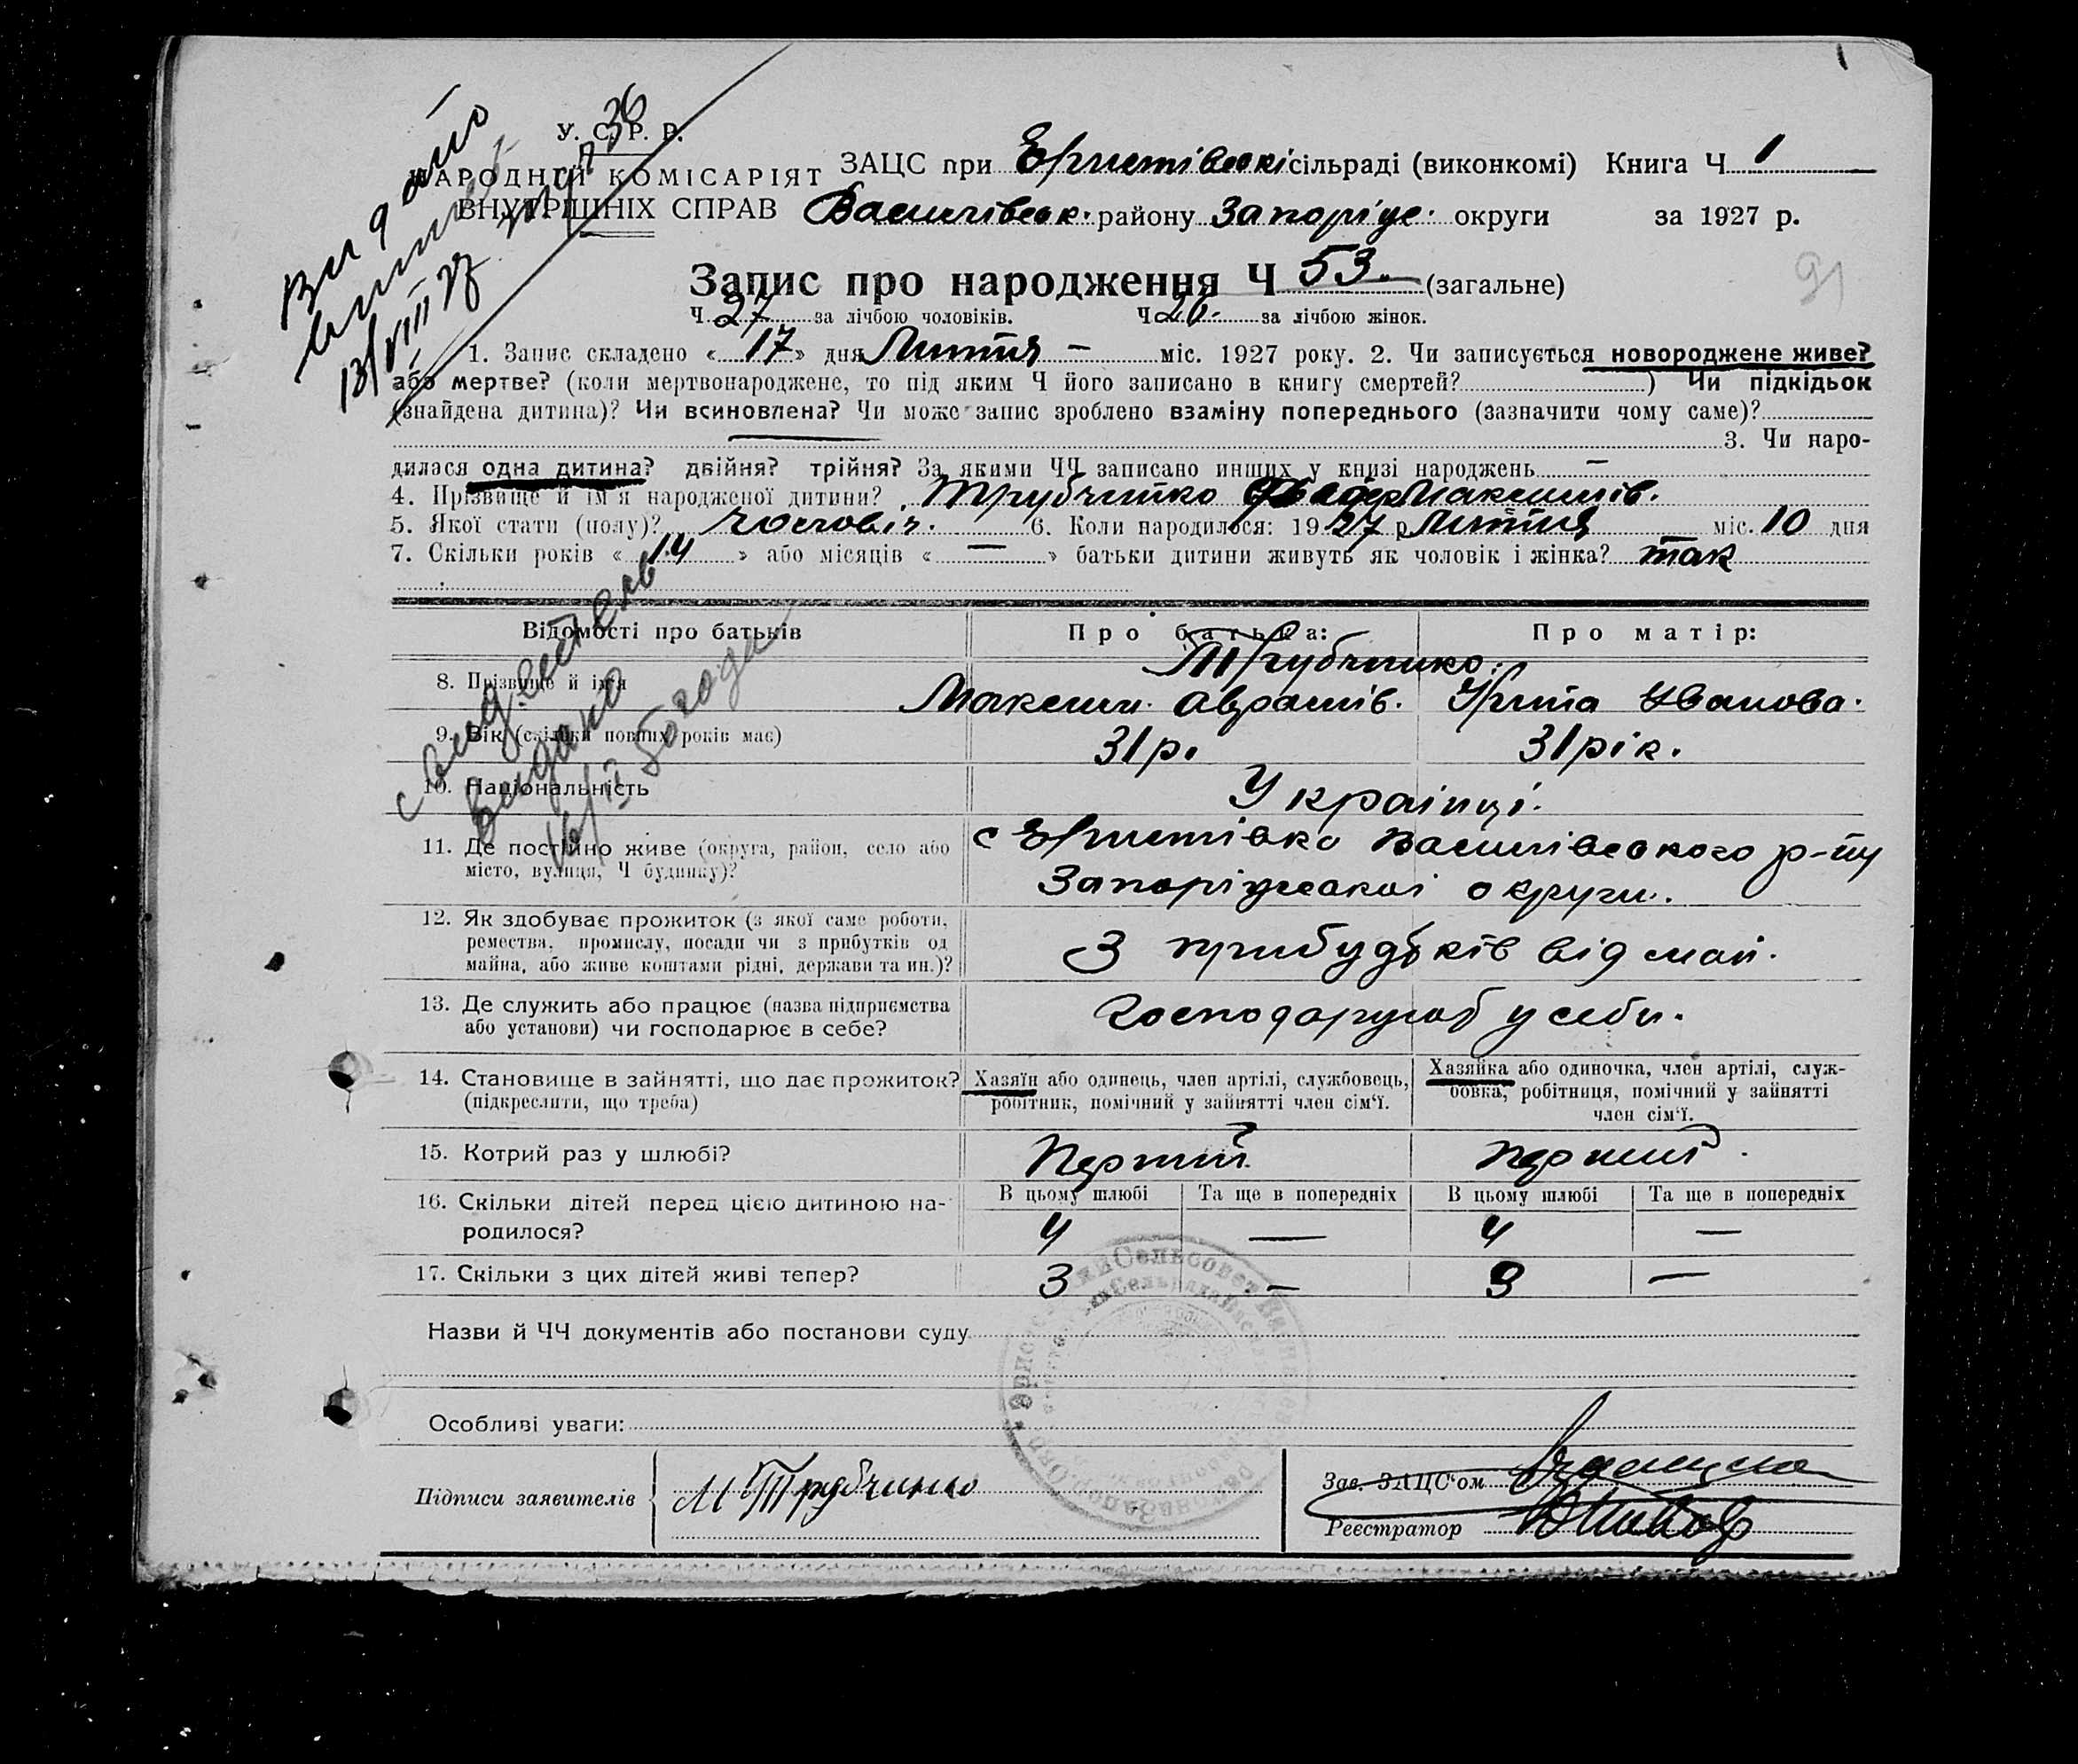 Видано
виписку
13/VIII 27
№ 36
У. С. Р. Р.
НАРОДНІЙ КОМІСАРІЯТ
ВНУТРІШНІХ СПРАВ
ЗАЦС при Еристівскі сільраді (виконкомі) Книга Ч 1
Василівськ. району Запоріж. округи за 1927 р.
91
Запис про народження Ч 53. (загальне)
Ч 27 за лічбою чоловіків. Ч 26. за лічбою жінок.
1. Запис складено « 17 » дня Липтня – міс. 1927 року. 2. Чи записується новороджене живе?
або мертве? (коли мертвонароджене, то під яким Ч його записано в книгу смертей? ) Чи підкідьок
(знайдена дитина)? Чи всиновлена? Чи може запис зроблено взаміну попереднього (зазначити чому саме)?
3. Чи наро-
дилася одна дитина? двійня? трійня? За якими ЧЧ записано инших у книзі народжень –
4. Прізвище й ім'я народженої дитини? Трубчипко Максимів.
5. Якої стати (полу)? чоловіч. 6. Коли народилося: 1927 р Липтня міс. 10 дня
7. Скільки років « 14 » або місяців « — » батьки дитини живуть як чоловік і жінка? так
Відомості про батьків Про батька: Про матір:
свидетельв
Видано
16/II 50 года
8. Прізвище й ім'я Трубчипко.
Максим. Аврамів. Ірипа Іванова.
9. Вік (скільки повних років має) 31р. 31рік.
10. Національність Українці.
11. Де постійно живе (округа, район, село або с Еристівка Василівського р-ну
місто, вулиця, Ч будинку)? Запоріжської округи.
12. Як здобуває прожиток (з якої саме роботи,
ремества, промислу, посади чи з прибутків од З прибудьків від май.
майна, або живе коштами рідні, держави та ин.)?
13. Де служить або працює (назва підприємства Господарують у себи.
або установи) чи господарює в себе?
14. Становище в зайнятті, що дає прожиток? Хазяїн або одинець, член артілі, службовець, Хазяйка або одиночка, член артілі, служ-
(підкреслити, що треба) робітник, помічний у зайнятті член сім'ї. бовка, робітниця, помічний у зайнятті
член сім'ї.
15. Котрий раз у шлюбі? Перший Перший.
16. Скільки дітей перед цією дитиною на- В цьому шлюбі Та ще в попередніх В цьому шлюбі Та ще в попередніх
родилося? 4 — 4 —
17. Скільки з цих дітей живі тепер? 3 – 3 –
Назви й ЧЧ документів або постанови суду
Особливі уваги:
Підписи заявителів М Трубчипко
Зав. ЗАЦС'ом
Реєстратор